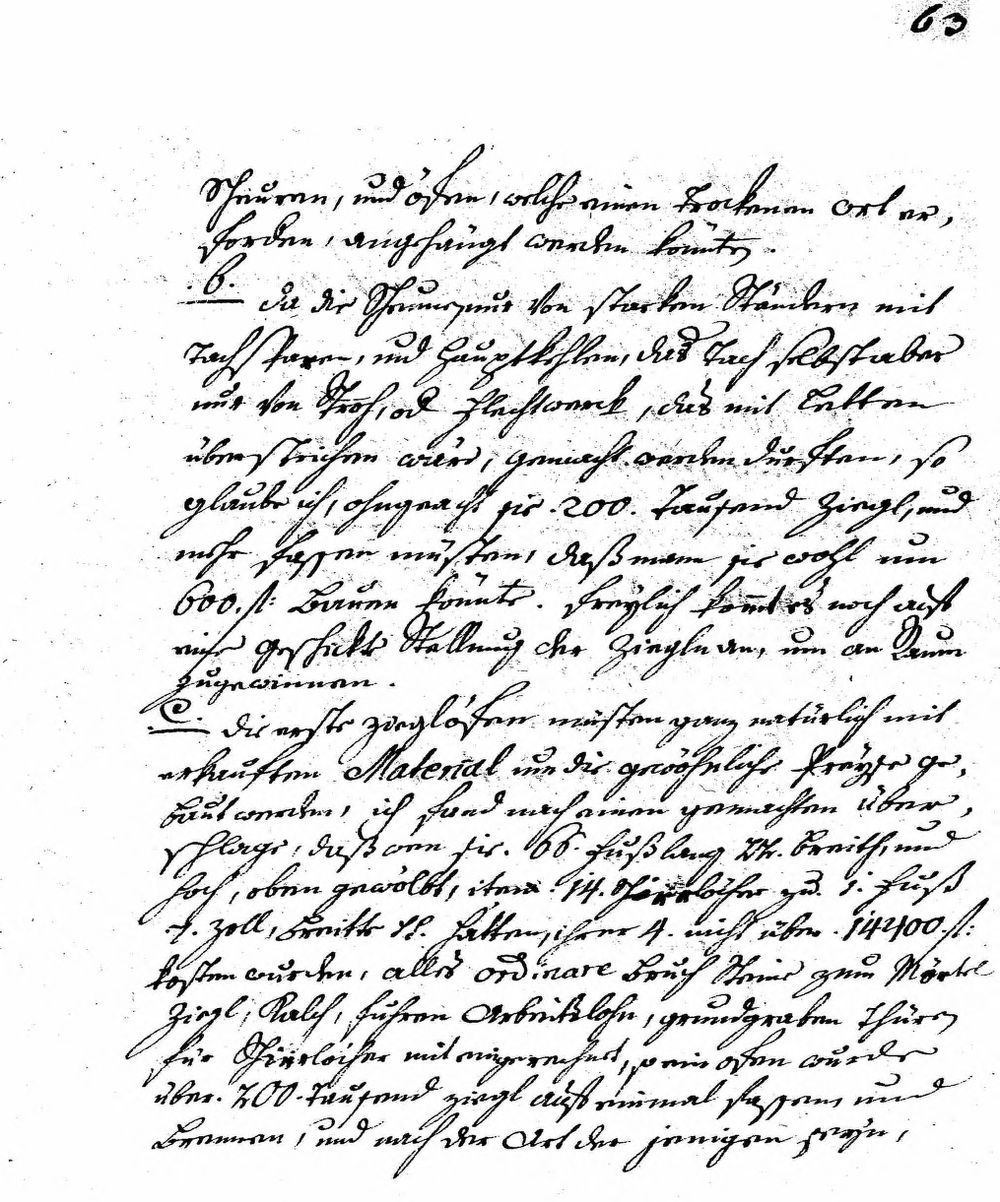 63
Scheuren, und öfen, welche einen Trockenen ort er,
forden, angehängt werden könnten.
.b.
da die Scheune nur von starken Ständern mit
Tachsparen, und Hauptkehlen, das Tach selbst aber
nur von Stroh, od Flechtwerck, das mit Letten
überstrichen wäre, gemacht werden durften, so
glaube ich, ohngeacht sie .200. Tausend Ziegl, und
mehr fassen müsten, daß mann sie wohl um
600. fl: Bauen könnte. freylich kommt es noch auf
eine geschickte Stellung der Ziegln an, um an Raum
zugewinnen.
C.
die erste zieglöfen müsten ganz natürlich mit
erkauften Material um die gewöhnliche Preyse ge,
baut werden, ich fand nach einen gemachten über,
schlage, daß wen sie .66. fuß lang breith, und
hoch, oben gewölbt, item .14. Schierlöcher zu .1. fuß
Zoll, breitte hätten, ihrer 4. nicht über .14400. fl:
kosten wurden, alles ordinare bruch Steine zum Mörtel
Ziegl, Kalch, fuhren Arbeitslohn, grundgraben Thüren
für Schierlöcher mit eingerechnet, so ein ofen wurde
über .200. Tausend ziegl auf einmal fassen, und
Brennen, und nach der Art der jenigen seyn,